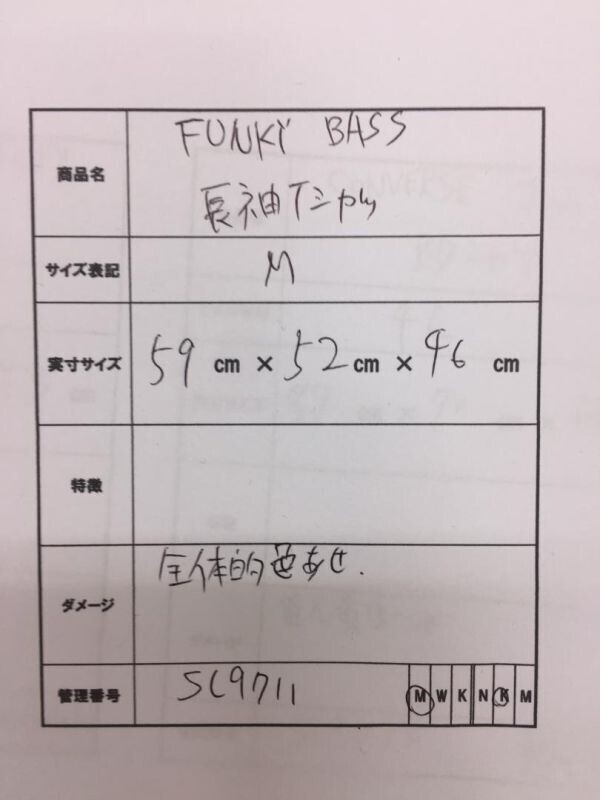 商品名 FUNKY BASS
長袖Tシャツ
サイズ表記 M
実寸サイズ 59 cm × 52 cm × 46 cm
特徴
ダメージ 全体的色あせ.
管理番号 SC9711 M W K N K M